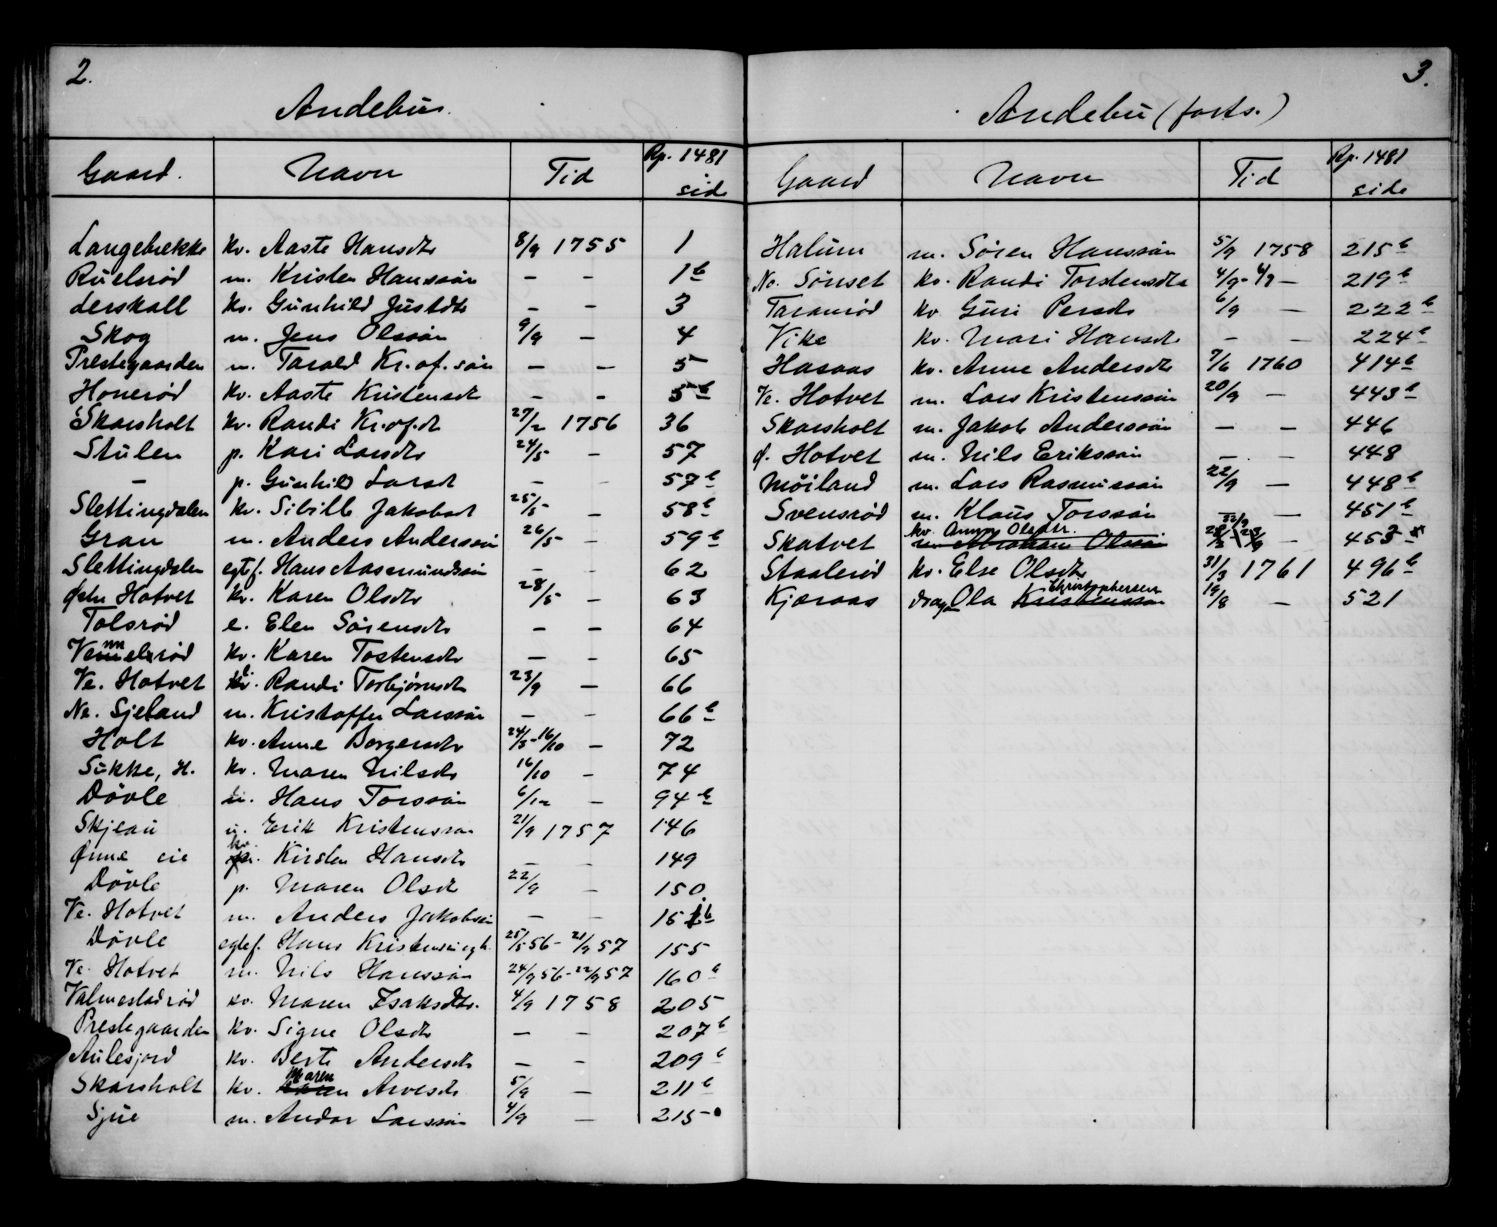 2.
Andebu.
Gaard. Navn Tid Rp. 1481 side
Langebrekke kv. Aaste Hansdtr 8/9 1755 1
Ruelsrød m. Kristen Hanssøn — — 1b
Lerskall kv. Gunhild Justdtr — — 3
Skog m. Jens Olssøn 9/9 — 4
Prestegaarden m. Tarald Kr.of.søn — — 5
Honerød kv. Aaste Kristensdt — — 5b
Skarsholt kv. Randi Kr.of.dt 27/2 1756 36
Stulen p. Kari Larsdtr 24/5 — 57
— p. Gunhild Larsdt — — 57b
Slettingdalen kv. Sibille Jakobsdt 25/5 — 58b
Gran m. Anders Anderssøn 26/5 — 59b
Slettingdalen egtf. Hans Aasmundssøn — — 62
Østre Hotvet kv. Karen Olsdtr 28/5 — 63
Tolsrød e. Elen Sørensdtr — — 64
Vemmelsrød kv. Karen Tostensdtr — — 65
Ve. Hotvet kv. Randi Torbjørnsdt 23/9 — 66
Ne. Sjeland m. Kristoffer Larssøn — — 66b
Holt kv. Anne Borgersdtr 24/5-16/10 — 72
Sukke, H. kv. Maren Nilsdtr 16/10 — 74
Døvle m. Hans Torssøn 6/12 — 94b
Skjeau u. Erik Kristenssøn 21/9 1757 146
Ønne eie kv. Kirsten Hansdtr — — 149
Døvle p. Maren Olsdt 22/9 — 150
Ve. Hotvet m. Anders Jakobsøn — — 151b
Døvle egtef. Hans Kristenssøn egt. 25/5 56 - 21/9 57 155
Ve. Hotvet m. Nils Hanssøn 24/9 56 - 22/9 57 160b
Valmestadrød kv. Maren Isaksdtr. 4/9 1758 205
Prestegaarden kv. Signe Olsdtr — — 207b
Aulesjord kv. Berte Andersdtr — — 209b
Skarsholt kv. Maren Arvesdtr 5/9 — 211b
Sjue m. Andor Larssøn 4/9 — 215
3.
Andebu (forts.)
Gaard Navn Tid Rp. 1481 side
Halum m. Søren Hanssøn 5/9 1758 215b
No. Sønset kv. Randi Torstensdtr 4/9 - 6/9 — 219b
Taranrød kv Guri Persdtr 6/9 — 222b
Vike kv. Mari Hansdtr — — 224b
Hasaas kv. Anne Andersdtr 7/6 1760 414b
Ve. Hotvet m. Lars Kristenssøn 20/9 — 443b
Skarsholt m. Jakob Anderssøn — — 446
Ø. Hotvet m. Nils Erikssøn — — 448
Møiland m. Lars Rasmussøn 22/9 — 448b
Svensrød m. Klaus Torssøn — — 451b
kv. Olsdtr.
Skatvet m. Abraham Olssøn 453
Staalerød kv. Else Olsdtr 31/3 1761 496b
Christophersen
Kjæraas dragon Ola Kristenssøn 19/8 — 521